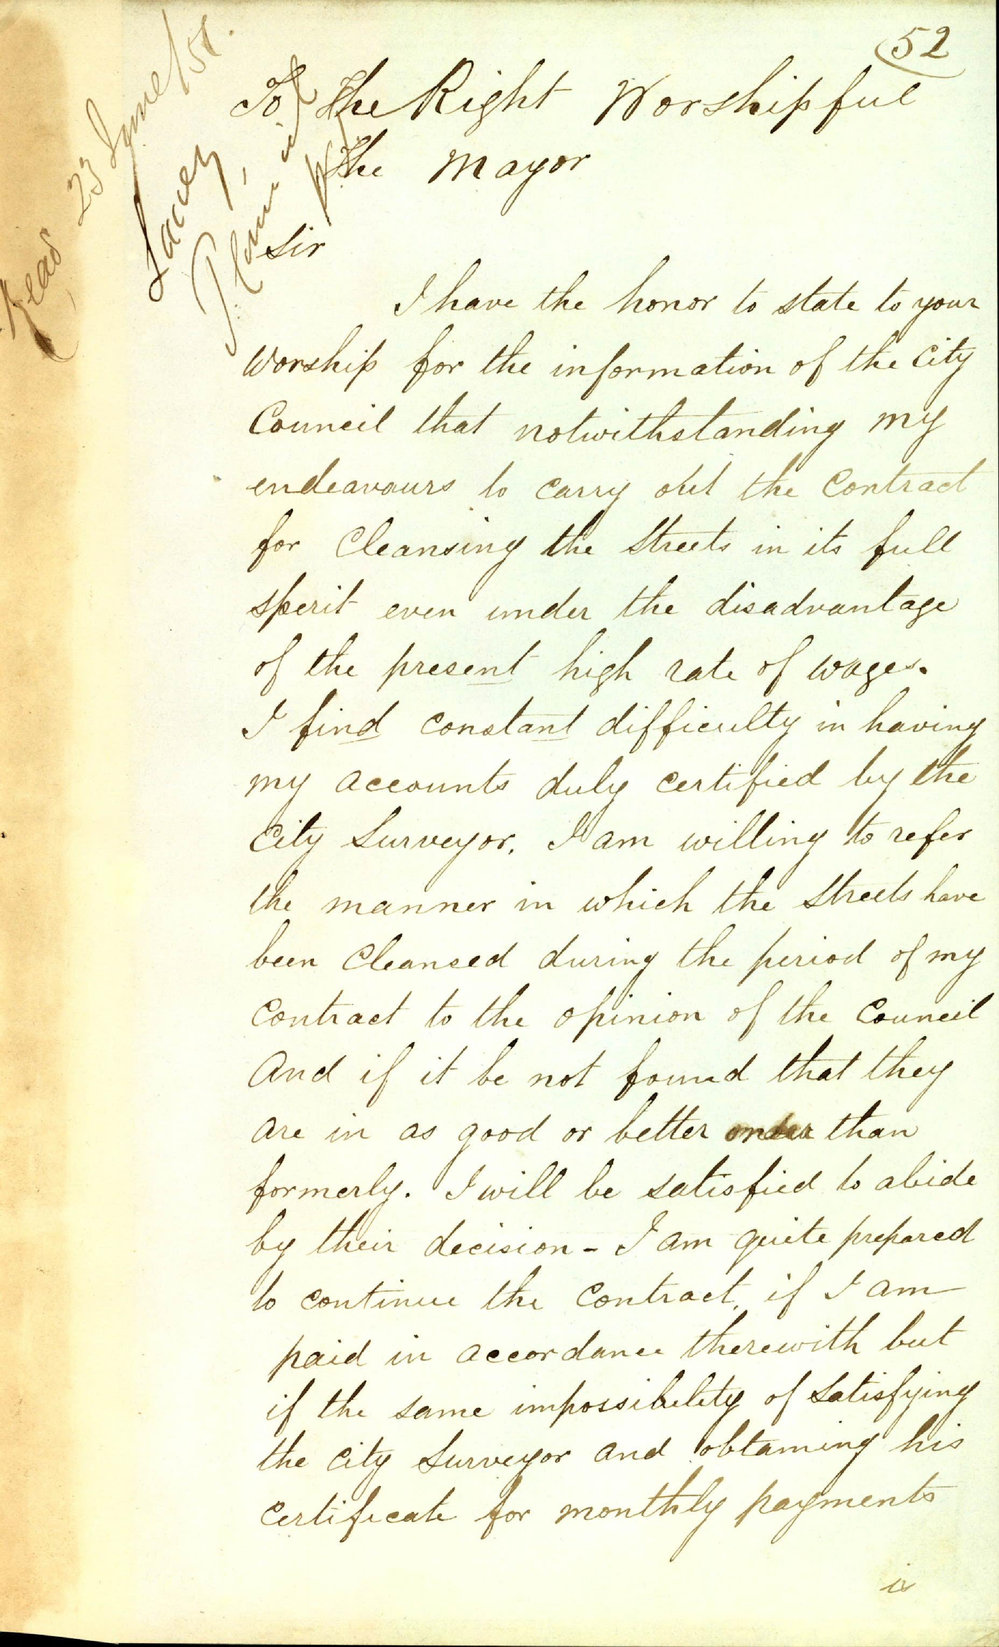 52
Read 23 June/58.
Lacey
To The Right Worshipful
The Mayor
Sir
I have the honor to state to your
Worship for the information of the City
Council that notwithstanding my
endeavours to carry out the Contract
for Cleansing the Streets in its full
sperit even under the disadvantage
of the present high rate of wages.
I find constant difficulty in having
my accounts duly certified by the
City Surveyor. I am willing to refer
the manner in which the Streets have
been Cleansed during the period of my
Contract to the opinion of the Council
And if it be not found that they
are in as good or better order than
formerly. I will be satisfied to abide
by their decision - I am quite prepared
to continue the Contract, if I am
paid in accordance therewith but
if the same impossibility of satisfying
the City Surveyor and obtaining his
Certificate for monthly payments
is